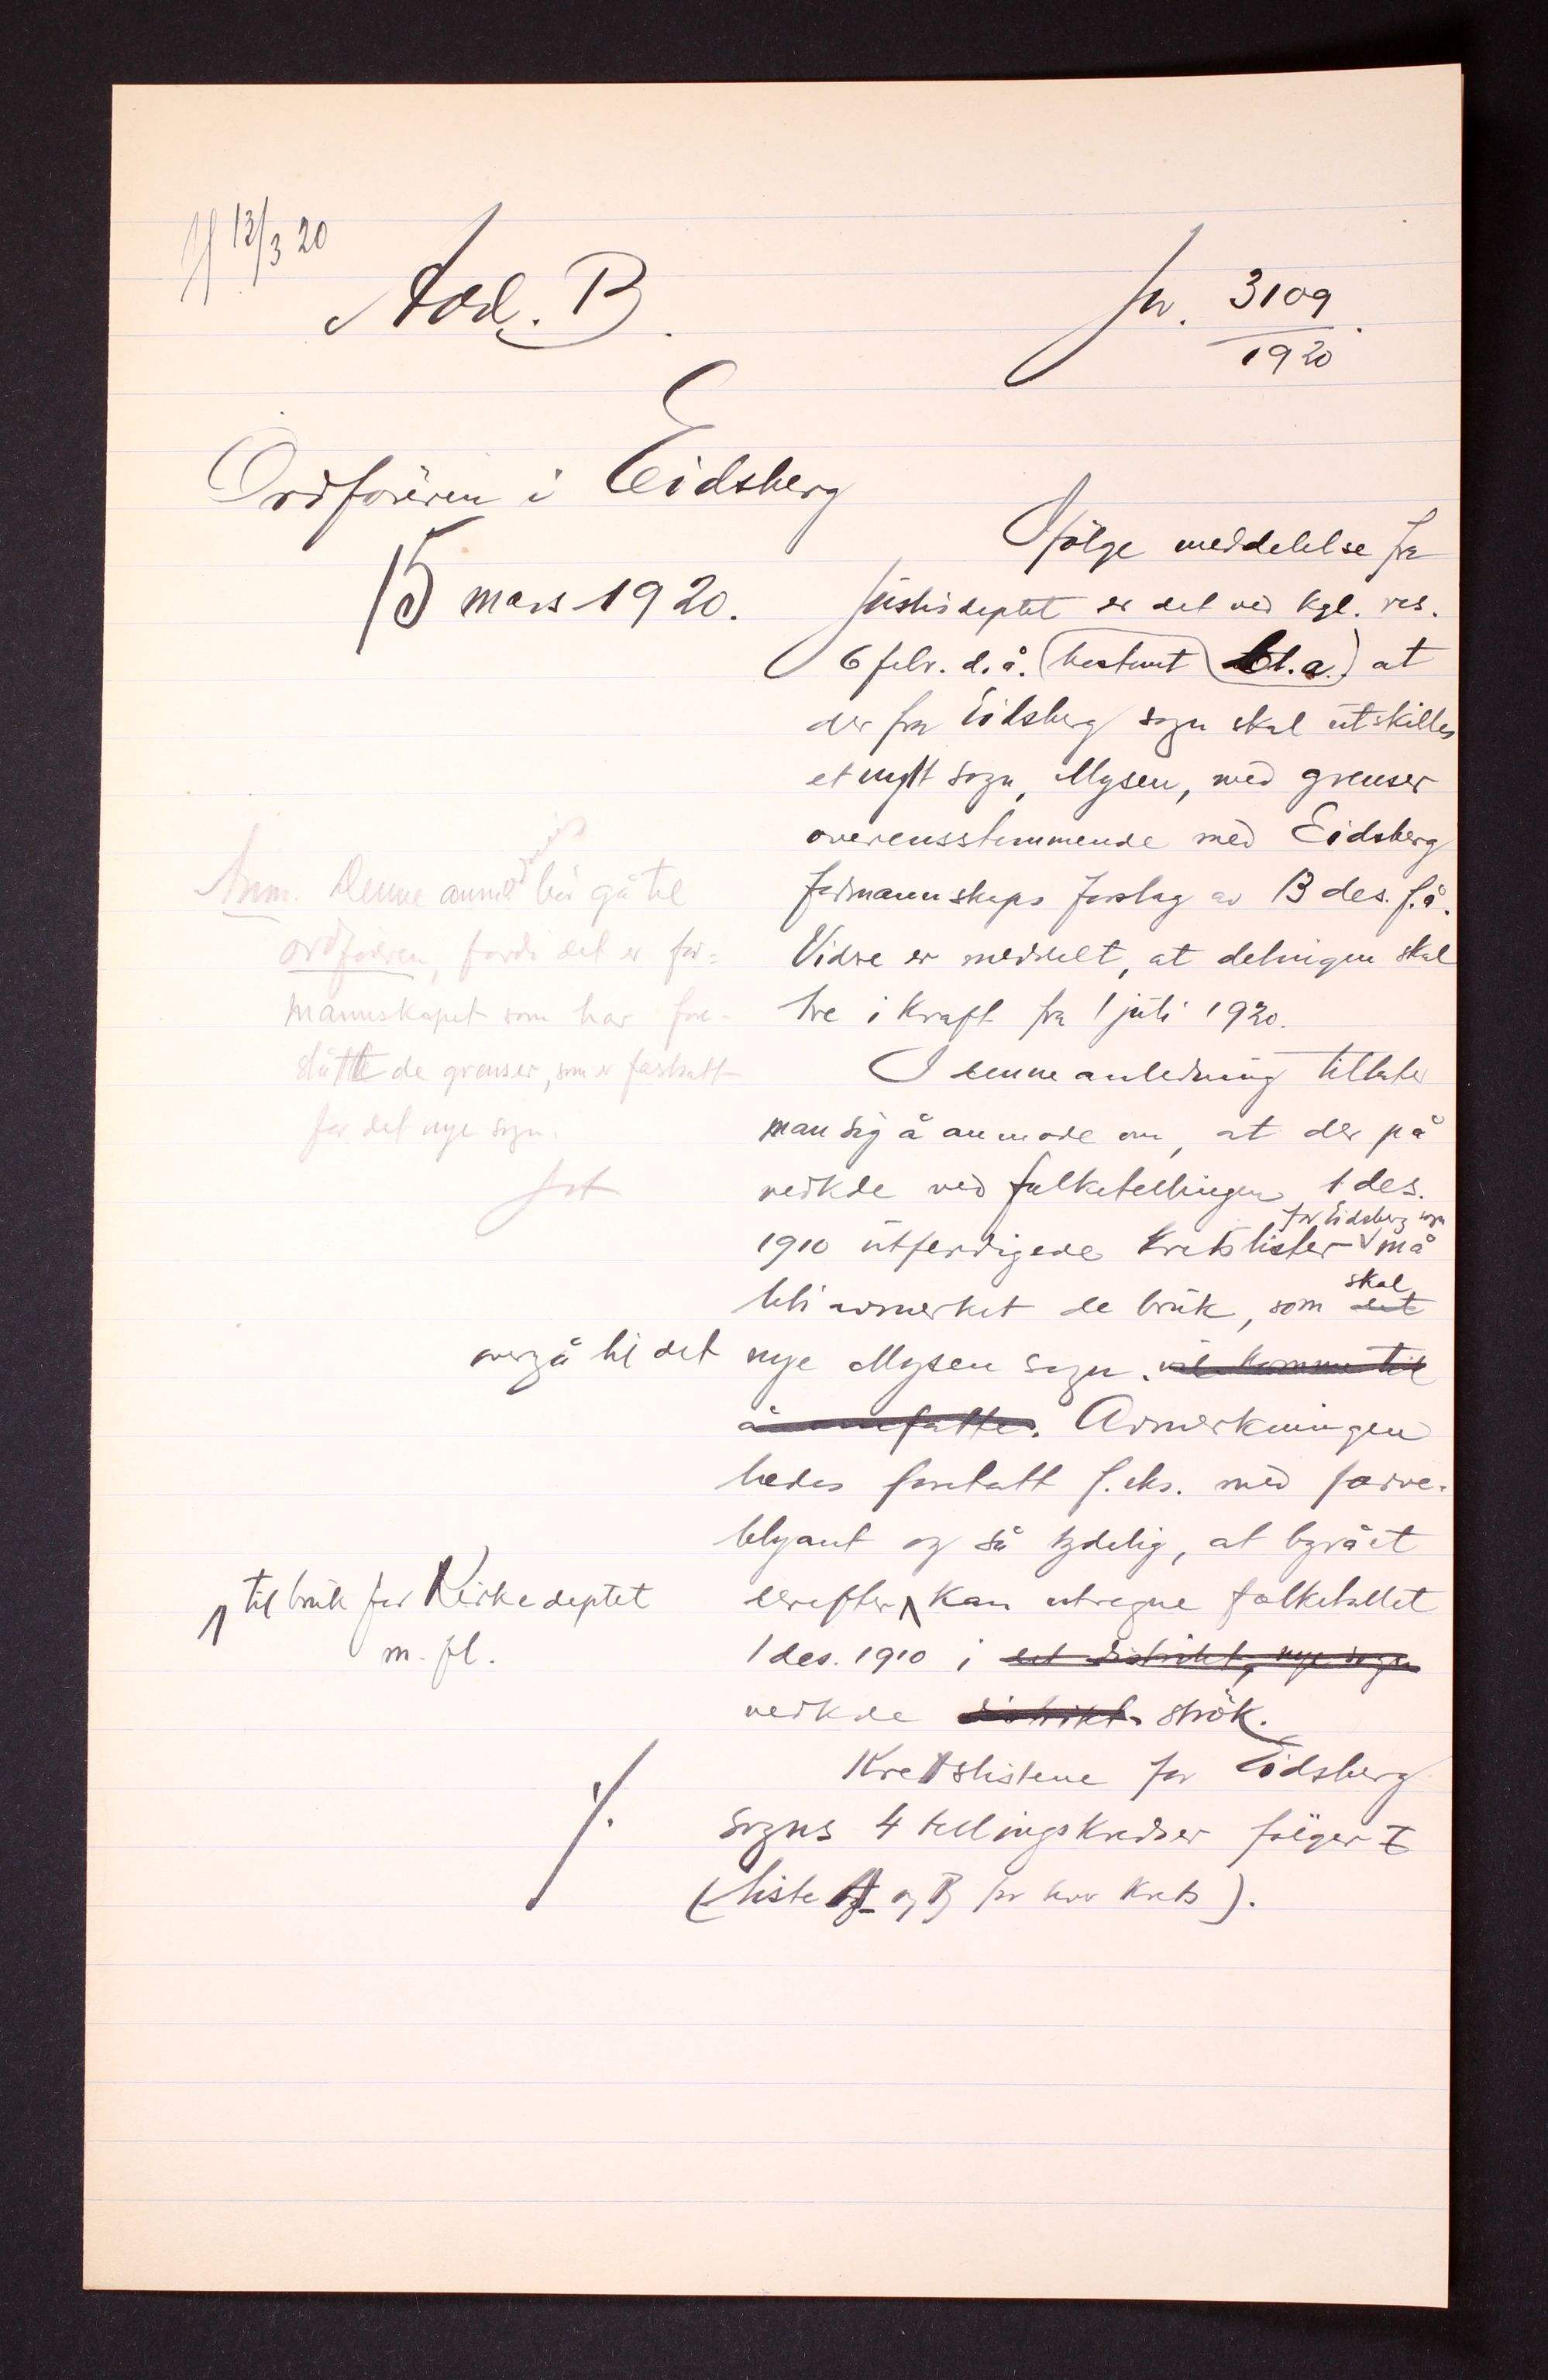 12/3 20
Avd. B.
Jnr. 3109
1920
Ordföreren i Eidsberg
15 mars 1920.
Ifölge meddelelse fra
Justisdeptet er det ved kgl. res.
6 febr. d.å. (bestemt bl.a.) at
der fra Eidsberg sogn skal utskilles
et nytt sogn, Mysen, med grenser
overensstemmende med Eidsberg
formannskaps forslag av 13 des. f.å.
Vidre er meddelt, at delingen skal
tre i kraft fra 1 juli 1920.
Anm. Denne anmod. bör gå til
ordföreren, fordi det er for-
mannskapet som har fore-
slått de grenser, som er fastsatt
for det nye sogn.
I denne anledning tillater
man sig å anmode om, at der på
vedkde ved folketellingen 1 des.
1910 utferdigede kretslister for Eidsberg sogn må
bli avmerket de bruk, som det skal
overgå til det nye Mysen sogn. vil komme til
å omfatte. Avmerkningen
bedes foretatt f.eks. med farve-
blyant og så tydelig, at byrået
derefter kan utregne folketallet
til bruk for Kirkedeptet
m. fl.
1 des. 1910 i det distrikt, nye sogn
vedkde distrikt. strök.
Kretslistene for Eidsberg
sogns 4 tellingskredser fölger
(liste A og B for hver krets).